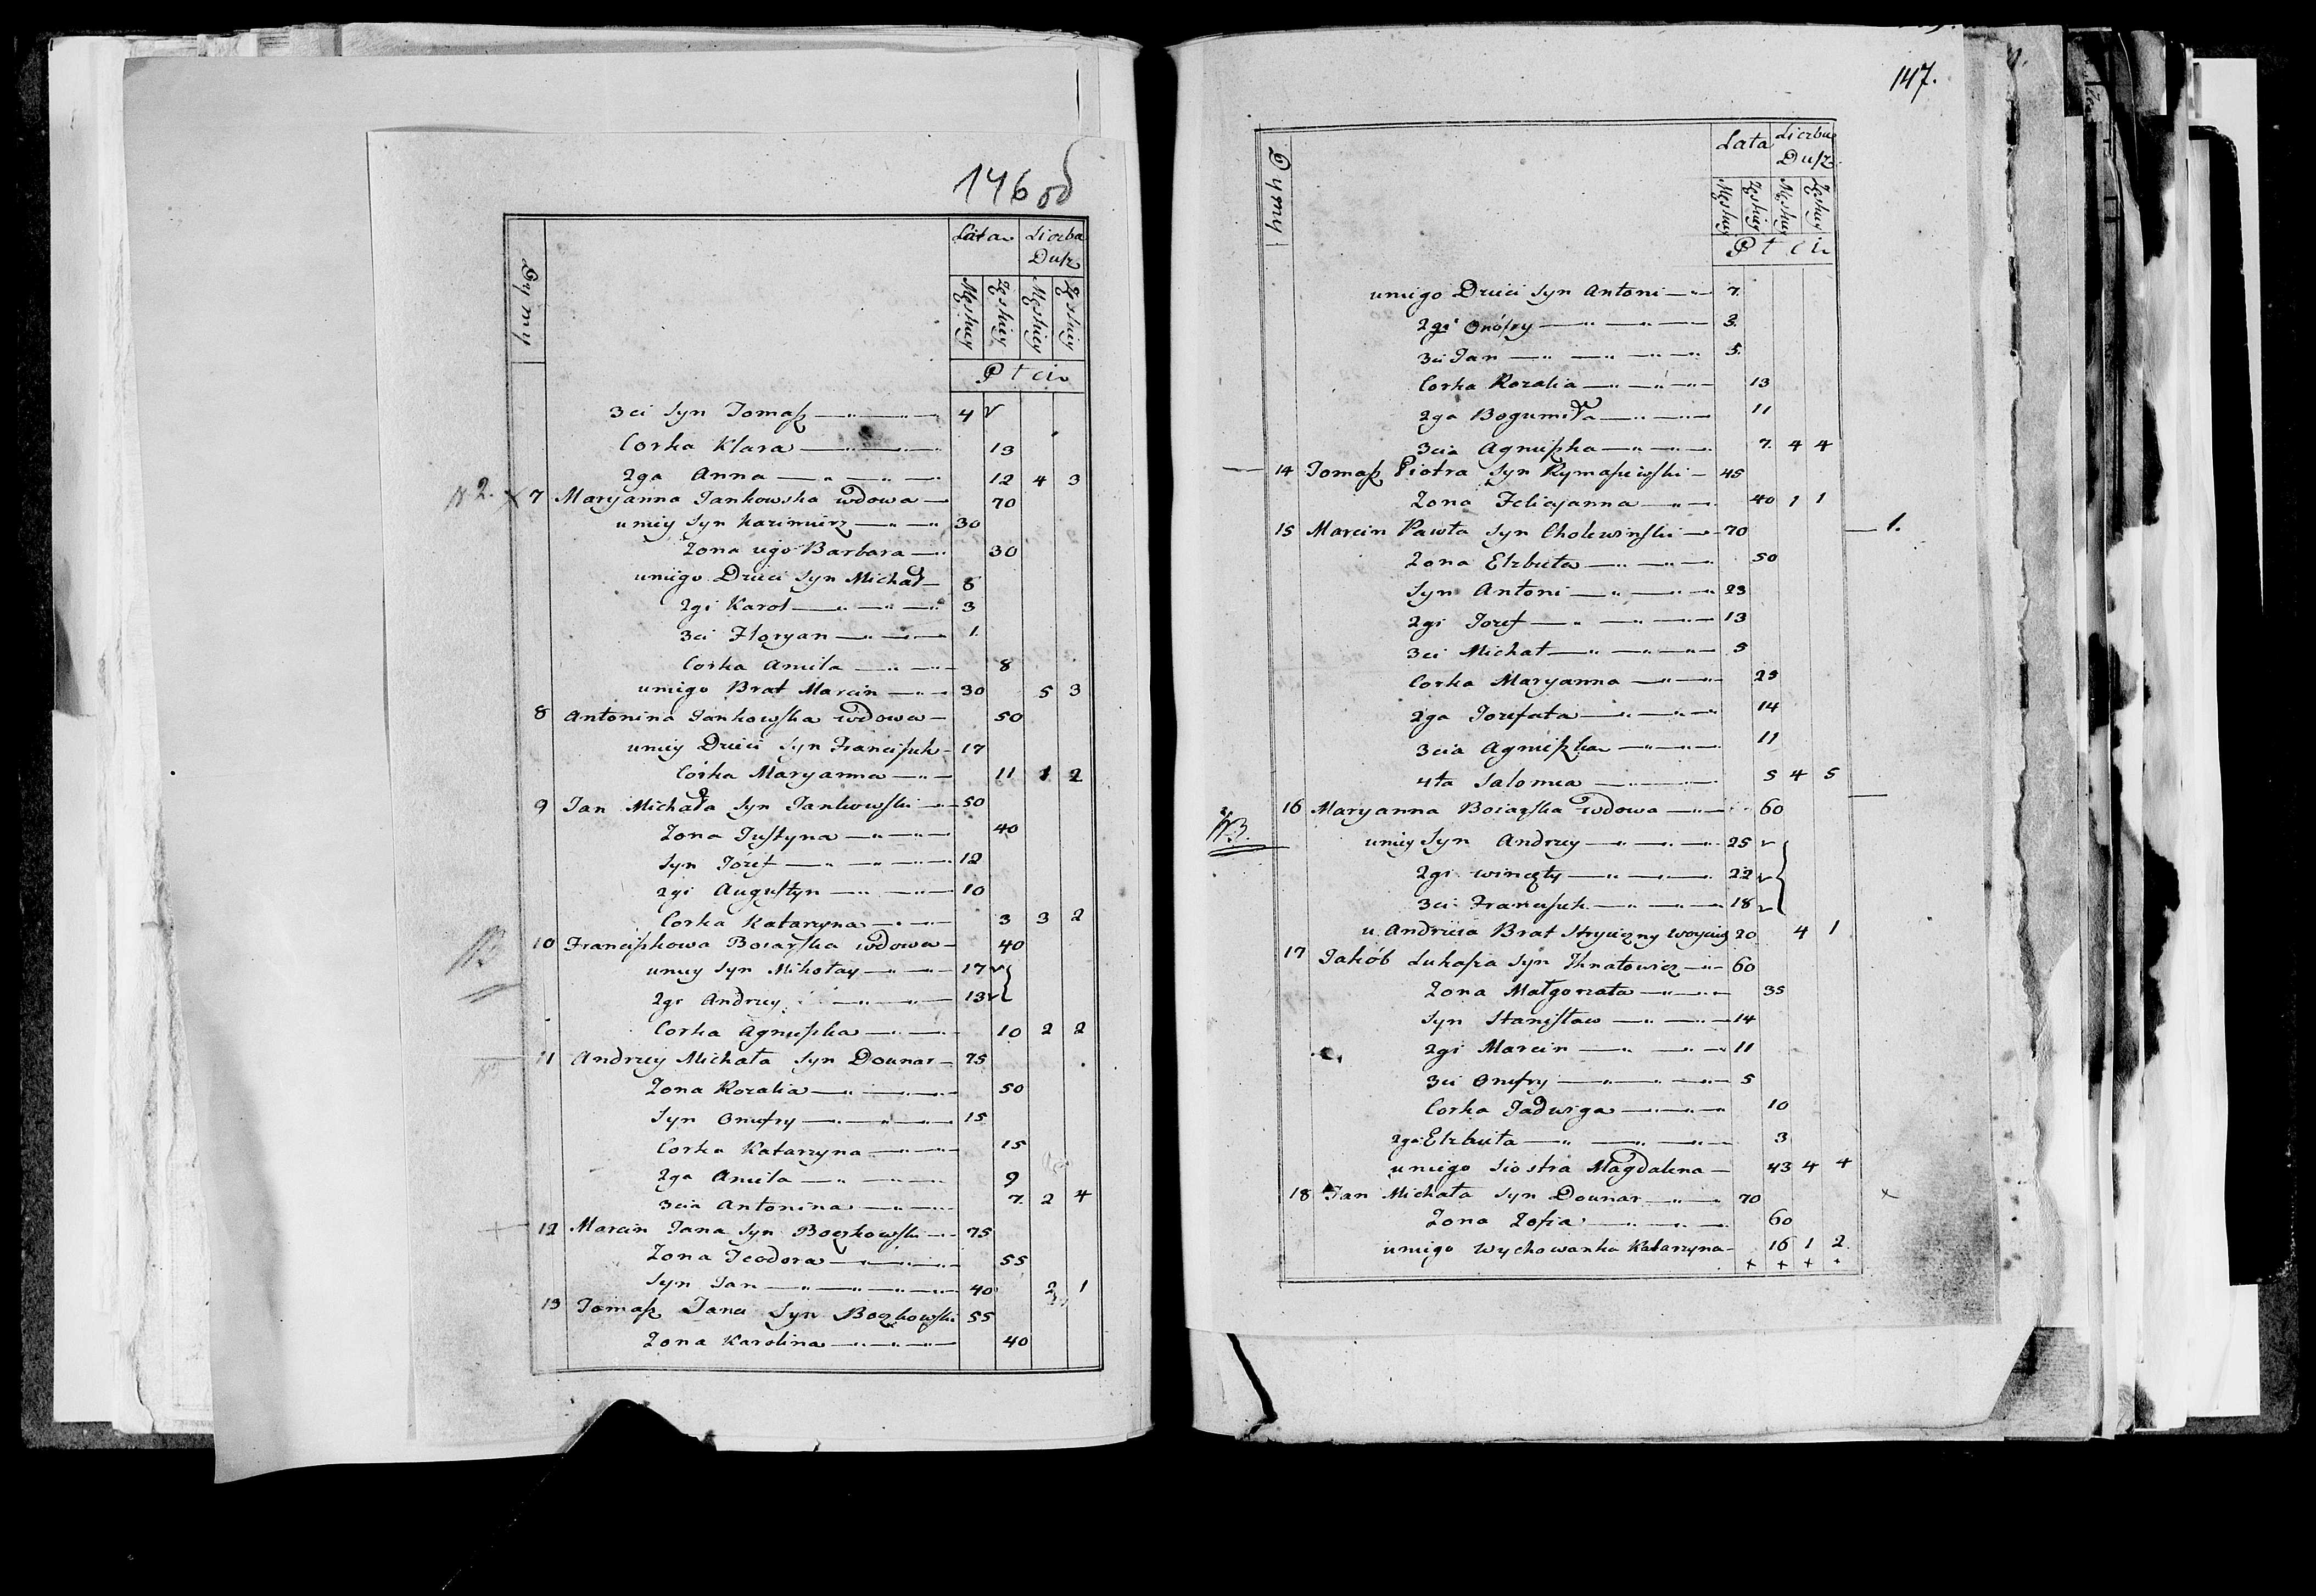 146 об
Dymy
Lata Liczba
Dusz
Męskiey Żęskiey Męskiey Żęskiey
Płci
3ci Syn Tomasz 4 v
Corka Klara 13
2ga Anna 12 4 3
N 2. x 7 Maryanna Jankowska wdowa 70
u niey Syn Kazimierz 30
Zona iego Barbara 30
u niego Dzieci Syn Michał 8
2gi Karol 3
3ci Floryan 1.
Corka Aniela 8
u niego Brat Marcin 30 5 3
8 Antonina Jankowska wdowa 50
u niey Dzieci Syn Franciszek 17
Córka Maryanna 11 1 2
9 Jan Michała Syn Jankowski 50
Zona Justyna 40
Syn Józef 12
2gi Augustyn 10
Corka Katarzyna 3 3 2
NB 10 Franciszkowa Boiarska wdowa 40
u niey Syn Mikołay 17 v
2gi Andrzey 13 v
Corka Agnieszka 10 2 2
11 Andrzey Michała Syn Dounar 75
Zona Rozalia 50
Syn Onufry 15
Corka Katarzyna 15
2ga Aniela 9
3cia Antonina 7. 2 4
12 Marcin Jana Syn Boczkowski 75
Zona Teodora 55
Syn Jan 40 2 1
13 Tomasz Jana Syn Boczkowski 55
Zona Karolina 40
147.
Dymy
Lata Liczba
Dusz
Męskiey Żęskiey Męskiey Żęskiey
Płci
u niego Dzieci Syn Antoni 7.
2gi Onófry 3.
3ci Jan 5.
Corka Rozalia 13
2ga Bogumiła 11
3cia Agnieszka 7. 4 4
14 Tomasz Piotra Syn Rymaszewski 45
Zona Felicjanna 40 1 1
15 Marcin Pawła Syn Cholewinski 70 1.
Zona Elzbieta 50
Syn Antoni 23
2gi Jozef 13
3ci Michał 5
Corka Maryanna 23
2ga Jozefata 14
3cia Agnieszka 11
4ta Salomea 5 4 5
16 Maryanna Boiarska wdowa 60
NB. u niey Syn Andrzey 25 v
2gi wincęty 22 v
3ci Franciszek 18 v
u Andrzeia Brat Stryieczny Woyciech 20 4 1
17 Jakób Łukasza Syn Ihnatowicz 60
Zona Małgorzata 35
Syn Stanisław 14
2gi Marcin 11
3ci Onufry 5
Corka Jadwiga 10
2ga Elzbieta 3
u niego Siostra Magdalena 43 4 4
18 Jan Michała Syn Dounar 70 x
Zona Zofia 60
u niego Wychowanka Katarzyna 16 1 2.
x x x x